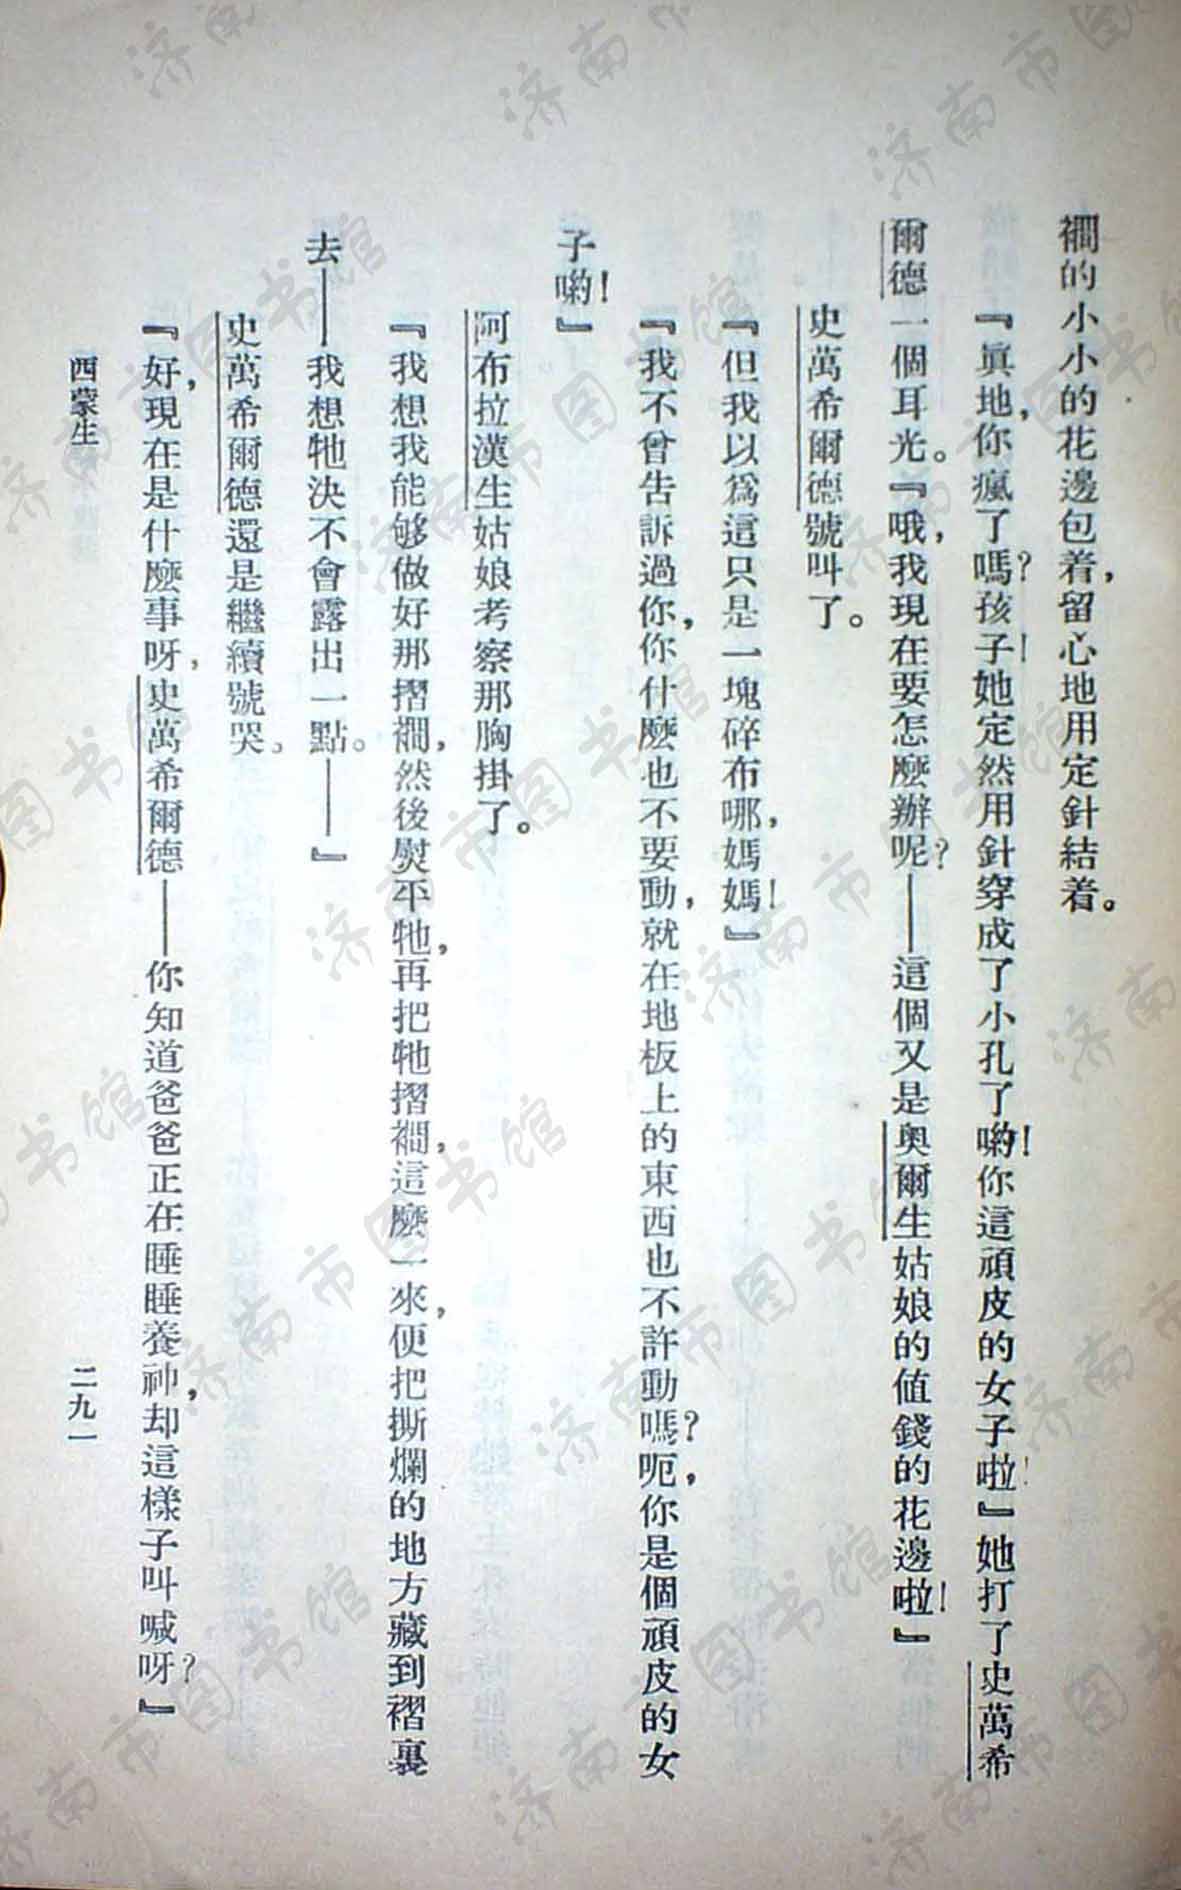 襉的小小的花邊包着，留心地用定針結着。
『眞地，你瘋了嗎？孩子！她定然用針穿成了小孔了喲！你這頑皮的女子啦！』她打了史萬希
爾德一個耳光。『哦，我現在要怎麼辦呢？——這個又是奧爾生姑娘的値錢的花邊啦！』
史萬希爾德號叫了。
『但我以爲這只是一塊碎布哪，媽媽！』
『我不曾告訴過你，你什麼也不要動，就在地板上的東西也不許動嗎？呃，你是個頑皮的女
子喲！』
阿布拉漢生姑娘考察那胸掛了。
『我想我能够做好那摺襉，然後熨平牠，再把牠摺襉，這麼一來，便把撕爛的地方藏到褶裏
去——我想牠決不會露出一點。——』
史萬希爾德還是繼續號哭。
『好，現在是什麼事呀，史萬希爾德——你知道爸爸正在睡睡養神，却這樣子叫喊呀？』
西蒙生
二九一
济南市图书馆